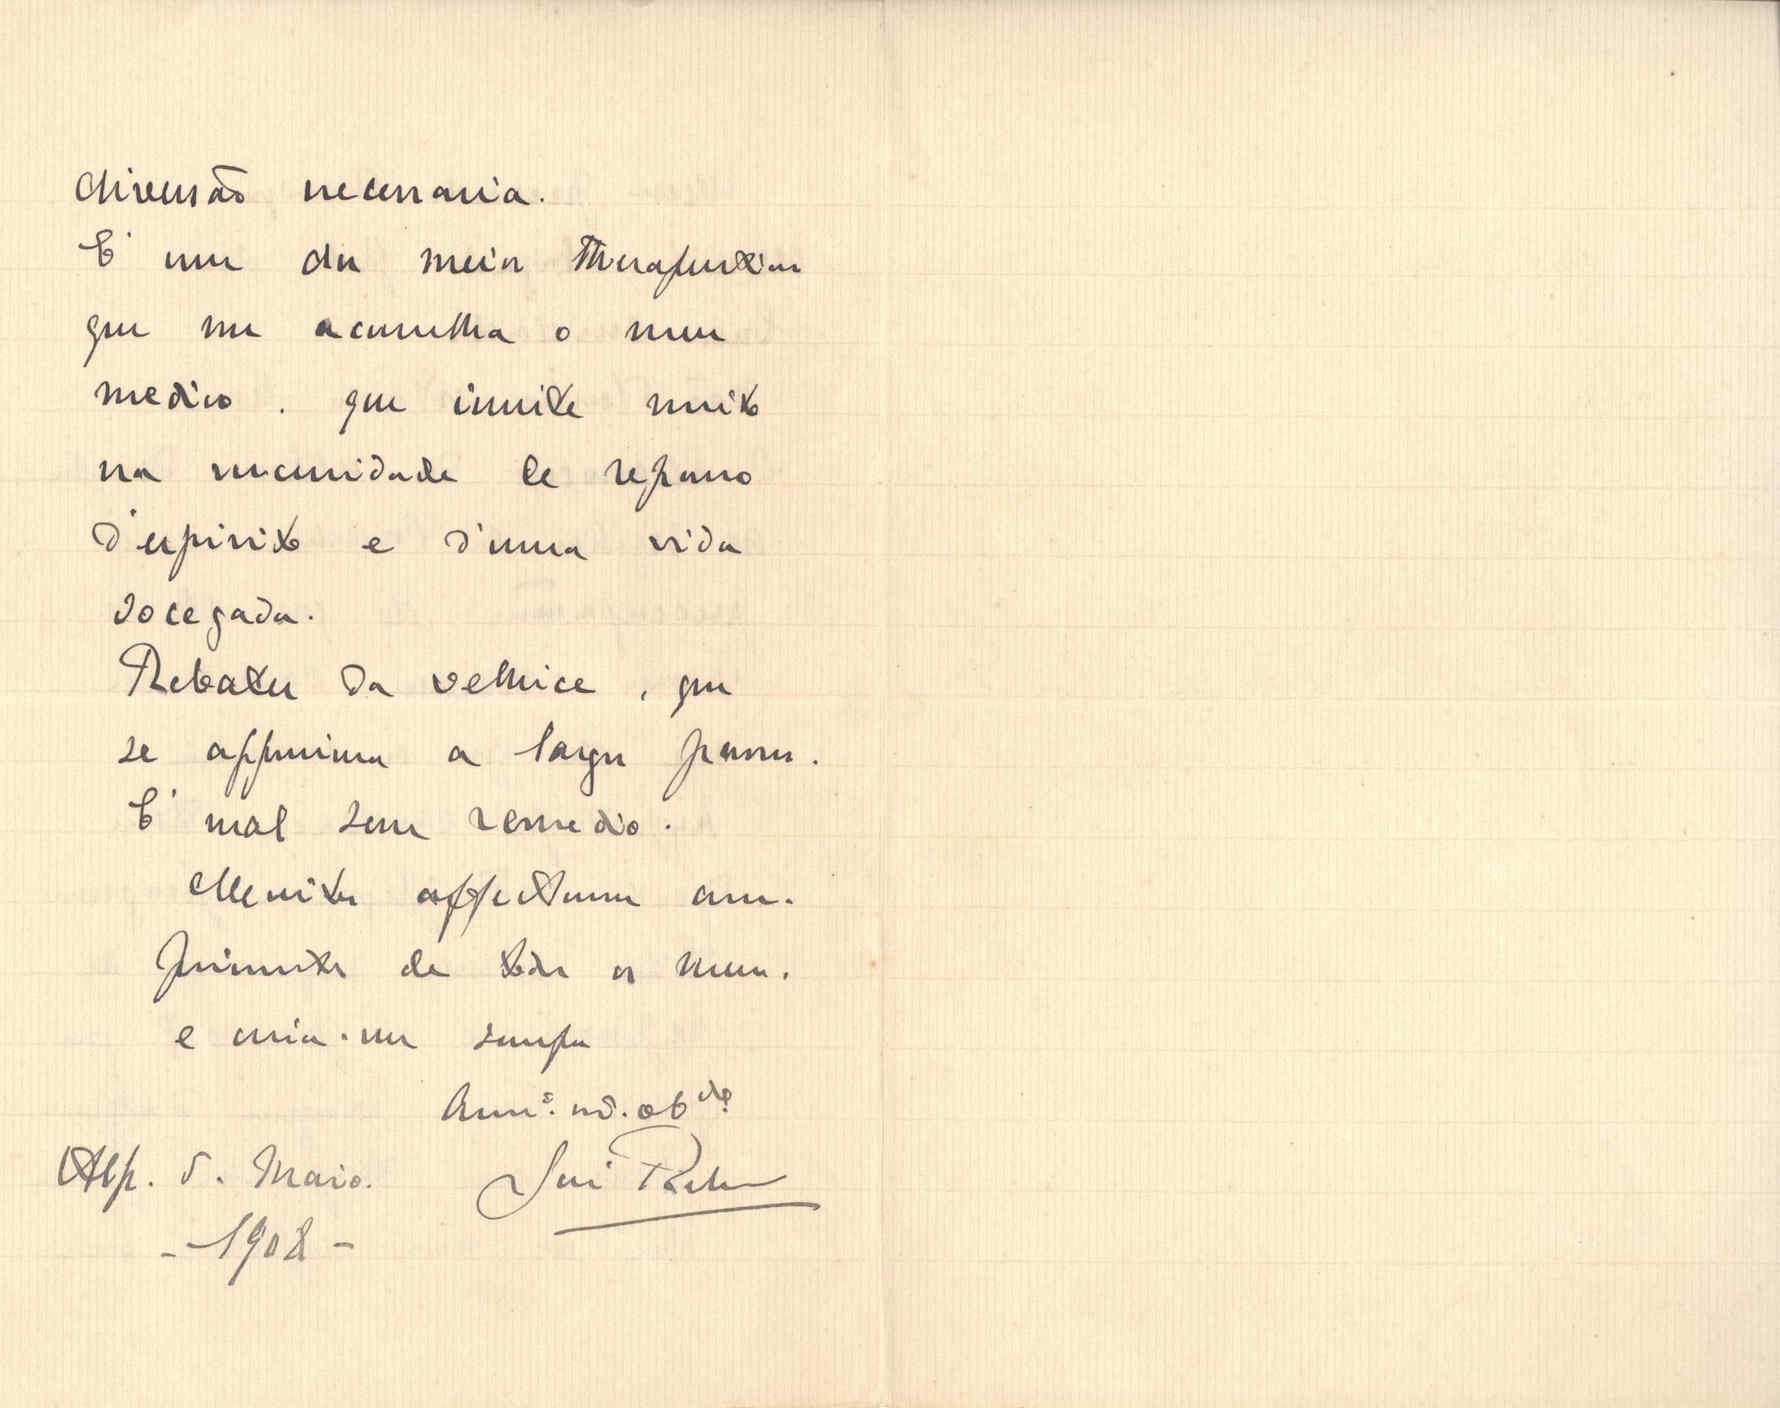 diversão necessaria.
É um dos meios Therapeuticos
que me aconselha o meu
medico. que insiste muito
na necessidade de repouso
d'espirito e d'uma vida
socegada.
Rebates da velhice, que
se approxima a largos passos.
É mal sem remedio.
Muitos affectuosos cum-
primentos de todos os meus.
e creia-me sempre
Am.º m.to ob.do
José Relvas
Alp. 5. Maio.
-1908-